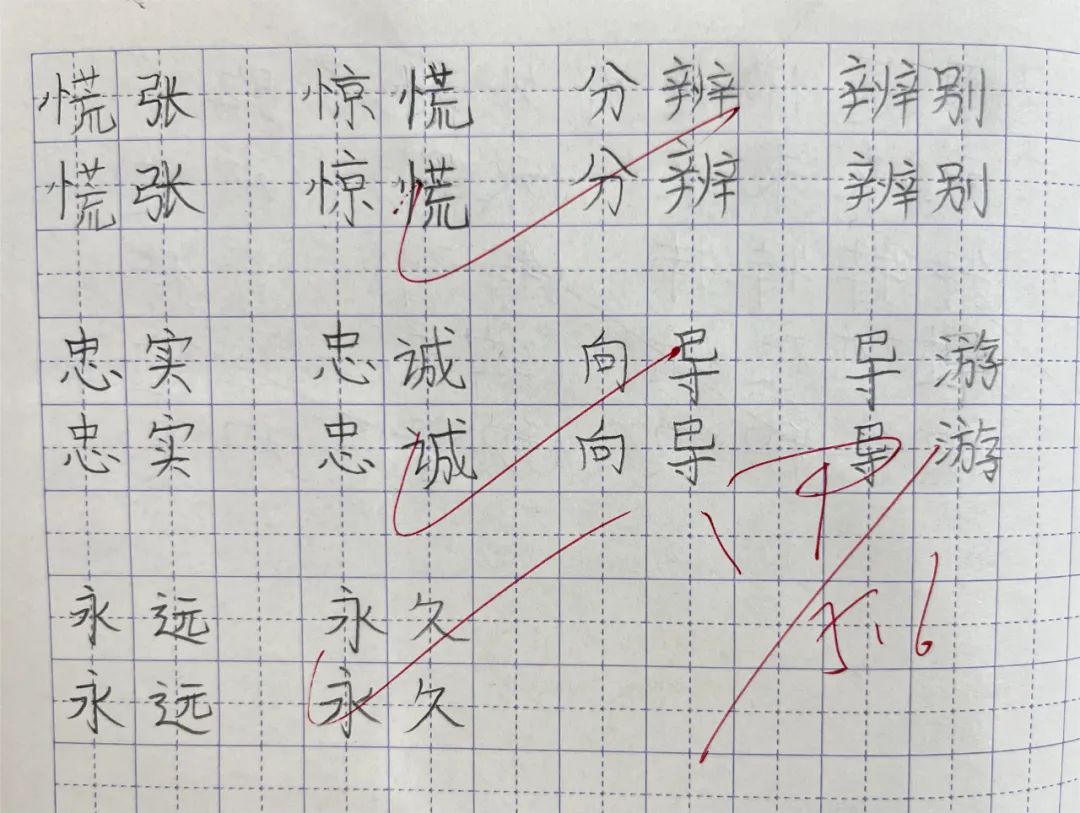 慌张 惊慌 分辨 辨别
慌张 惊慌 分辨 辨别
忠实 忠诚 向导 导游
忠实 忠诚 向导 导游
永远 永久
永远 永久
5.6